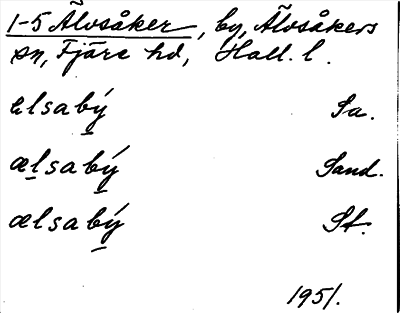 1-5 Älvsåker, by, Älvsåkers
sn, Fjäre hd, Hall. l.
elsabý Sa.
ælsabý Sand.
ælsabý St.
1951.